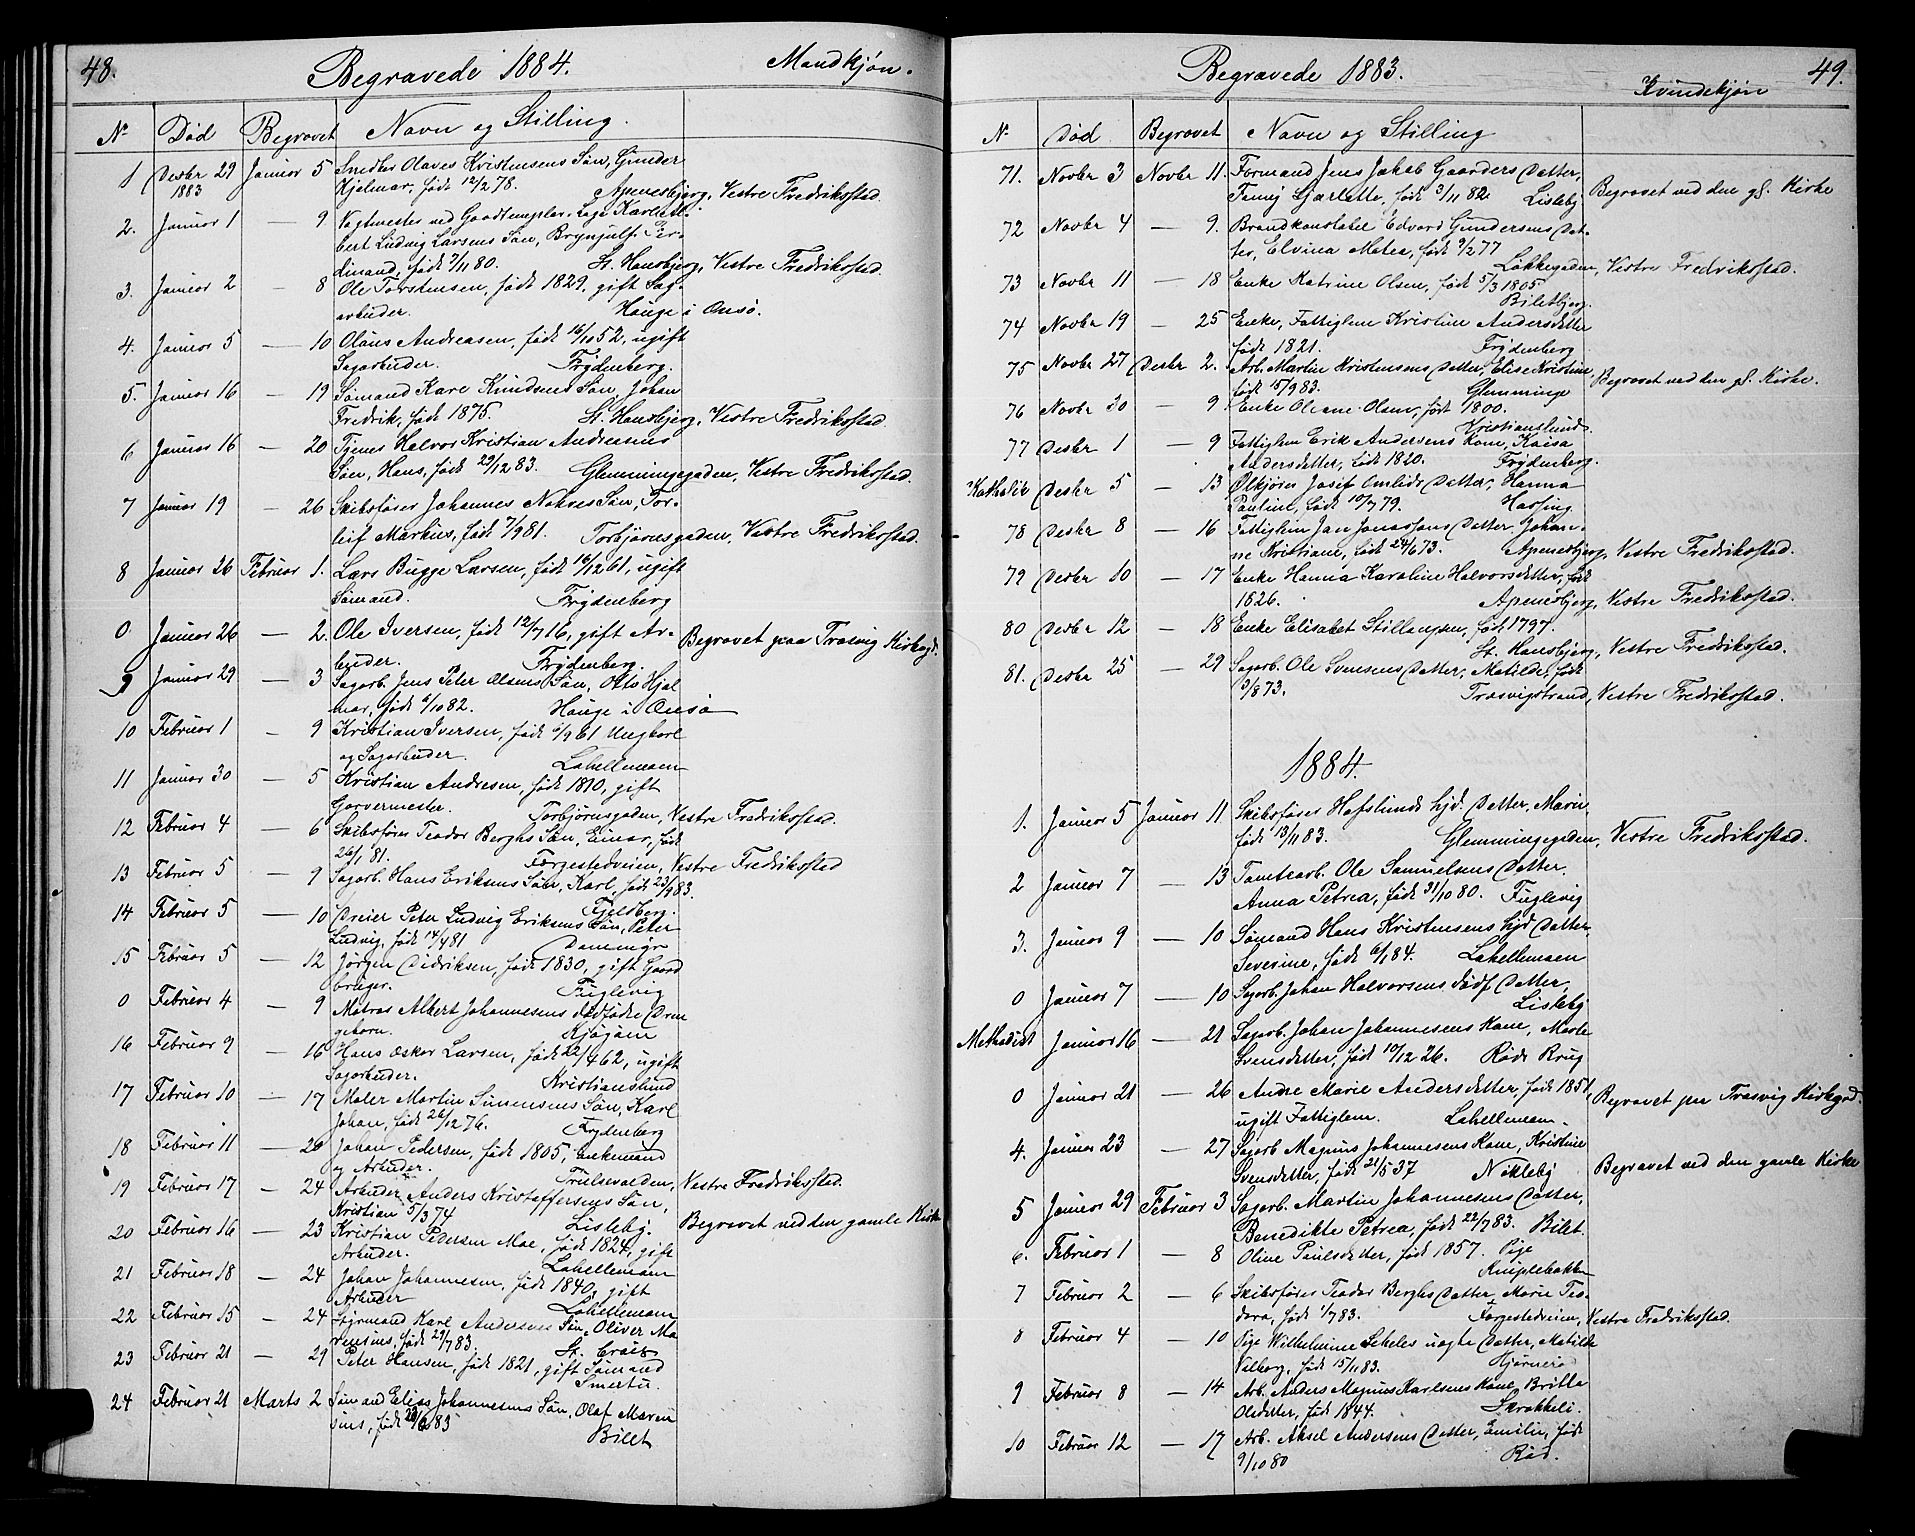 48.
Begravede 1884.
Mandkjøn.
Nr Død Begravet Navn og Stilling.
1 Desbr 29 1883 Januar 5 Smedbr Olaves Kristensens Søn, Gunder
Hjelmar, født 12/2 78. Apenesbjerg, Vestre Fredriksstad.
2. Januar 1 — 9 Vagtmester ved Goodtemplar-Loge Karl
bert Ludvig Larsens Søn, Brynjulf Fer-
dinand, født 7/11 80. St. Hansbjerg, Vestre Fredriksstad.
3. Januar 2 — 8 Ole Torstensen, født 1829, gift Sag-
arbeider. Hauge i Onsø.
4. Januar 5 — 10 Olaus Andreasen, født 16/10 52, ugift
Sagarbeider. Frydenberg.
5. Januar 16 — 19 Sømand Kare Knudsens Søn, Johan
Fredrik, født 1875. St. Hansbjerg, Vestre Fredriksstad.
6 Januar 16 — 20 Tjenes Halvor Kristian Andreasens
Søn, Hans, født 29/12 83. Glemmingegaden, Vestre Fredriksstad.
7 Januar 19 — 26 Skibsfører Johannes Søn, Tor-
leif Markus, født 7/9 81. Torbjørnsgaden, Vestre Fredriksstad.
8 Januar 26 Februar 1. Lars Bugge Larsen, født 16/12 61, ugift
Sømand. Frydenberg
0 Januar 26 — 2. Ole Iversen, født 12/7 16, gift Ar- Begravet paa Trosvig Kirkegd.
beider. Frydenberg.
9 Januar 29 — 3 Sagarb. Jens Peter Olsens Søn, Otto Hjal
mar, født 6/10 82. Hauge i Onsø
10 Februar 1 — 9 Kristian Iversen, født 6/9 61 Ungkarl
og Sagarbeider. Lahellemoen
11 Januar 30 — 5 Kristian Andresen, født 1810, gift
Garvermester. Torbjørnsgaden, Vestre Fredriksstad.
12 Februar 4 — 6 Skibsfører Teodor Berghs Søn, Einar, født
26/1 81. Færgestedveien, Vestre Fredriksstad
13 Februar 5 — 9 Sagarb. Hans Eriksens Søn, Karl, født 23/9 83.
Fjeldberg.
14 Februar 5 — 10 Dreier Peter Ludvig Eriksens Søn, Peter
Ludvig, født 14/4 81
15 Februar 5 — 12 Jørgen Didriksen, født 1830, gift Gaard
bruger. Fuglevig
0 Februar 4 — 9 Matros Albert Johannesens dødfødte Dren
gebarn. Kjøgøen
16 Februar 9 — 16 Hans Oskar Larsen, født 22/4 62, ugift
Sagarbeider. Kristianslund
17 Februar 10 — 17 Maler Martin Simensens Søn, Karl
Johan, født 26/12 76. Frydenberg
18 Februar 11 — 20 Johan Pedersen, født 1805, Enkemand
og Arbeider. Vestre Fredriksstad.
19 Februar 17 — 24 Arbeider Anders Kristoffersens Søn,
Kristian 5/3 74 Lisleby.
20 Februar 16 — 23 Kristian Pedersen Moe, født 1824, gift Begravet ved den gamle Kirke
Arbeider. Lahellemoen
21 Februar 18 — 24 Johan Johannesen, født 1840, gift
Arbeider Lahellemoen
22 Februar 15 — 24 Styrmand Karl Andersens Søn, Oliver Ma
rensius, født 29/7 83. St. Croix
23 Februar 21 — 29 Peter Hansen, født 1821, gift Sømand
Smertu.
24 Februar 21 Marts 2 Sømand Elias Johannesens Søn, Olaf Maren
sius, født 83 Bilet
Begravede 1883.
Kvindekjøn
49.
N. Død Begravet Navn og Stilling
71. Novbr 3 Novbr 11. Formand Jens Jakob Gaarders Datter,
Fanny Charlotte, født 3/11 82. Lisleby Begravet ved den gl. Kirke
72 Novbr 4 — 9. Brandkonstabel Edvard Gundersens Dat-
ter, Elvina Matea, født 9/2 77
Løkkegaden, Vestre Fredriksstad.
73 Novbr 11 — 18 Enke Katrine Olsen, født 5/3 1805
Biletbjerg.
74 Novbr 19 — 25 Enke, Fattiglem Kristine Andersdatter
født 1821. Frydenberg
75 Novbr 27 Desbr 2. Arb. Martin Kristensens Datter, Elise Kristine,
født 15/9 83. Glemminge Begravet ved den gl. Kirke.
76 Novbr 30 — 9 Enke Oleane Olsen, født 1800.
Kristianslund.
77 Desbr 1 — 9 Fattiglem Erik Andersens Kone, Kaisa
Andersdatter, født 1820. Frydenberg.
Katholik Desbr 5 — 13 Ølkjører Josef Omlids Datter, Hanna
Pauline, født 10/7 79. Hassing
78 Desbr 8 — 16 Fattiglem Jan Jonassons Datter Johan-
ne Kristiane, født 24/6 73. Apenesbjerg, Vestre Fredriksstad.
79 Desbr 10 — 17 Enke Hanna Karoline Halvorsdatter, født
1826. Apenesbjerg, Vestre Fredriksstad.
80 Desbr 12 — 18 Enke Elisabet Stillaugsen, født 1797.
St. Hansbjerg, Vestre Fredriksstad.
81. Desbr 25 — 29 Sagarb. Ole Svensens Datter, Matilde, født
3/8 73. Trosvigstrand, Vestre Fredriksstad.
1884.
1. Januar 5 Januar 11 Skibsfører Hafslunds hjd. Datter, Marie
født 13/11 83. Glemmingegaden, Vestre Fredriksstad.
2 Januar 7 — 13 Tomtearb. Ole Samuelsens Datter.
Anna Petrea, født 31/10 80. Fuglevig
3. Januar 9 — 10 Sømand Hans Kristensens hjd Datter,
Severine, født 6/1 84. Lahellemoen
0 Januar 7 — 10 Sagarb. Johan Halvorsens dødf Datter,
Lisleby
Methodist Januar 16 — 21 Sagarb. Johan Johannesens Kone, Marte
Svensdatter, født 10/12 26. Røds Brug
0 Januar 21 — 26 Andre Marie Andersdatter, født 1851,
ugift Fattiglem. Lahellemoen. Begravet paa Trosvig Kirkegd.
4. Januar 23 — 27 Sagarb Magnus Johannesens Kone, Kristine
Svensdatter, født 21/5 37 Nøkleby Begravet ved den gamle Kirke
5 Januar 29 Februar 3 Sagarb. Martin Johannesens Datter,
Benedikte Petrea, født 22/7 83. Bilet.
6. Februar 1 — 8 Oline Paulsdatter, født 1857. Pige
Kniplebakken
7 Februar 2 — 6 Skibsfører Teodor Berghs Datter, Marie Teo-
dora, født 1/7 83. Færgestedveien, Vestre Fredriksstad.
8 Februar 4 — 10 Pige Wilhelmine uægte Datter, Matilde
Valborg, født 15/11 83.
9 Februar 8 — 14 Arb. Anders Magnus Karlsens Kone Britta
Olsdatter, født 1844.
10 Februar 12 — 17 Arb. Aksel Andersens Datter, Emilie, født
9/10 80 Rød.